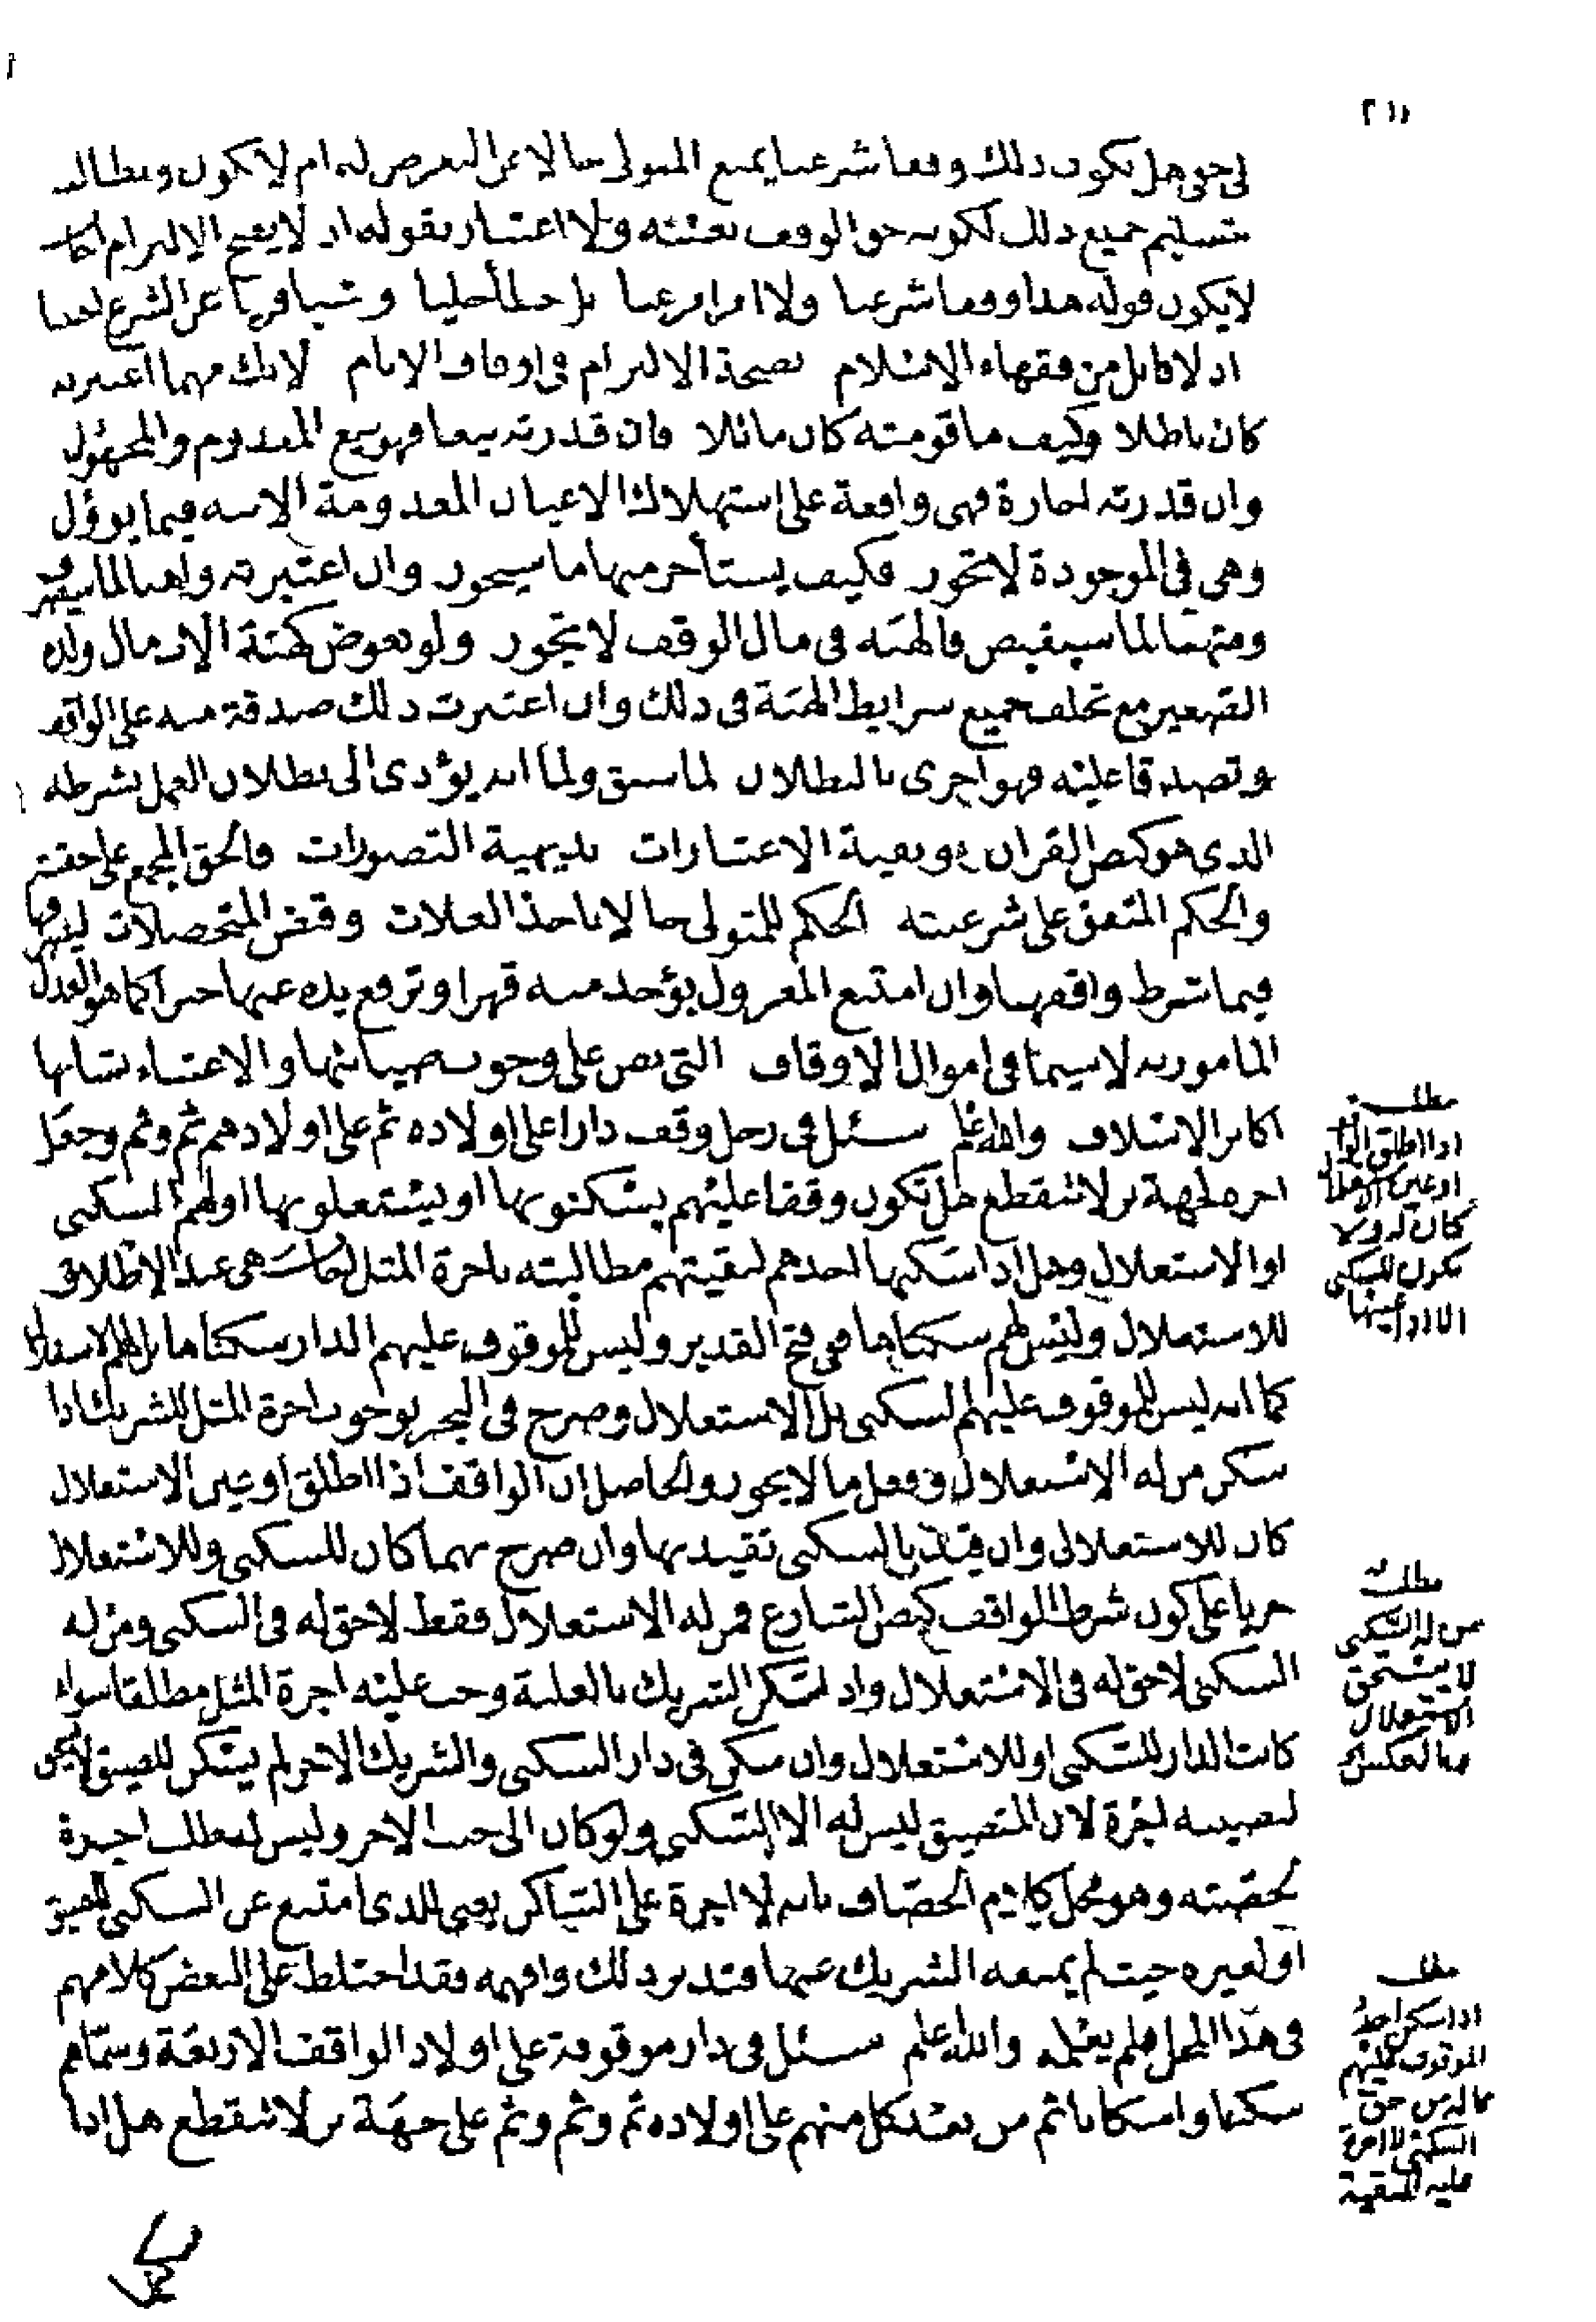 ٢١١
لي حق هل يكون ذلك دفعا شرعيا يمنع المتولي حالا عن التعرض له ام لا يكون ويطالب
بتسليم جميع ذلك لكونه حق الوقف بعينه ولا اعتبار بقوله اذ لا يصح الالتزام اجاب
لا يكون قوله هذا دفعا شرعيا ولا امرا مرعيا بل خطأ جليا عن الشرع قصيا
اذ لا قائل من فقهاء الاسلام بصحة الالتزام في اوقاف الانام لانك مهما اعتبرته
كان باطلا وكيف ما قومته كان مائلا فان قدرته بيعا فهو بيع المعدوم والمجهول
وان قدرته اجارة فهي واقعة على استهلاك الاعيان المعدومة الاتية فيما يؤول
وهي في الموجودة لا تجوز فكيف يستأجر منها ما سيحوز وان اعتبرته واهبا لما
ومتهبا لما سيقبض فالهبة في مال الوقف لا تجوز ولو بعوض كهبة الاب مال ولده
الصغير مع تخلف جميع شرايط الهبة في ذلك وان اعتبرت ذلك صدقة منه على الواقف
وتصدقا عليه فهو احرى بالبطلان لما سبق ولما انه يؤدي الى بطلان العمل بشرطه
الذي هو كنص القران وبقية الاعتبارات بديهية التصورات فالحق المجمع على حقيته
والحكم المتفق على شرعيته الحكم للمتولي حالا باخذ الغلات وقبض المتحصلات ليصرفها
فيما شرط واقفها وان امتنع المعزول يؤخذ منه قهرا وترفع يده عنها جبرا كما هو العدل
المامور به لا سيما في اموال الاوقاف التي نص على وجوب صيانتها والاعتناء بشانها
اكابر الاسلاف والله اعلم سئل في رجل وقف دارا على اولاده ثم على اولادهم ثم وثم وجعل
اخره لجهة بر لا تنقطع هل تكون وقفا عليهم يسكنونها او يستغلونها او لهم السكنى
او الاستغلال وهل اذا سكنها احدهم لبقيتهم مطالبته باجرة المثل اجاب هي عند الاطلاق
للاستغلال وليس لهم سكناها ففي فتح القدير وليس للموقوف عليهم الدار سكناها بل لهم الاستغلال
كما انه ليس للموقوف عليهم السكنى بل الاستغلال وصرح في البحر بوجوب اجرة المثل للشريك اذا
سكن من له الاستغلال وفعل ما لا يجوز والحاصل ان الواقف اذا اطلق او عين الاستغلال
كان للاستغلال وان قيد بالسكنى تقيد بها وان صرح بهما كان للسكنى وللاستغلال
جريا على كون شرط الواقف كنص الشارع فمن له الاستغلال فقط لا حق له في السكنى ومن له
السكنى لا حق له في الاستغلال واذا سكن الشريك بالغلبة وجب عليه اجرة المثل مطلقا سواء
كانت الدار للسكنى او للاستغلال وان سكن في دار السكنى والشريك الاخر لم يسكن للضيق لا يجب
لنصيبه اجرة لان المتضيق ليس له الا السكنى ولو كان الى جنب الاخر وليس له طلب اجرة
لحصته وهو محمل كلام الخصاف بانه لا اجرة على الساكن يعني للذي امتنع عن السكنى للضيق
او لغيره حيث لم يمنعه الشريك عنها فتدبر ذلك وافهمه فقد اختلط على البعض كلامهم
في هذا المحل فلم يفهمه والله اعلم سئل في دار موقوفة على اولاد الواقف الاربعة وسماهم
سكنا واسكانا ثم من بعد كل منهم على اولاده ثم وثم وثم على جهة بر لا تنقطع هل اذا
مطلب
اذا اطلق الواقف
او عين الاستغلال
كان له ولا
تكون للسكنى
مطلب
من له السكنى
لا يستحق
الاستغلال
وبالعكس
مطلب
اذا سكن احد
الموقوف عليهم
السكنى لا اجرة
عليه للبقية